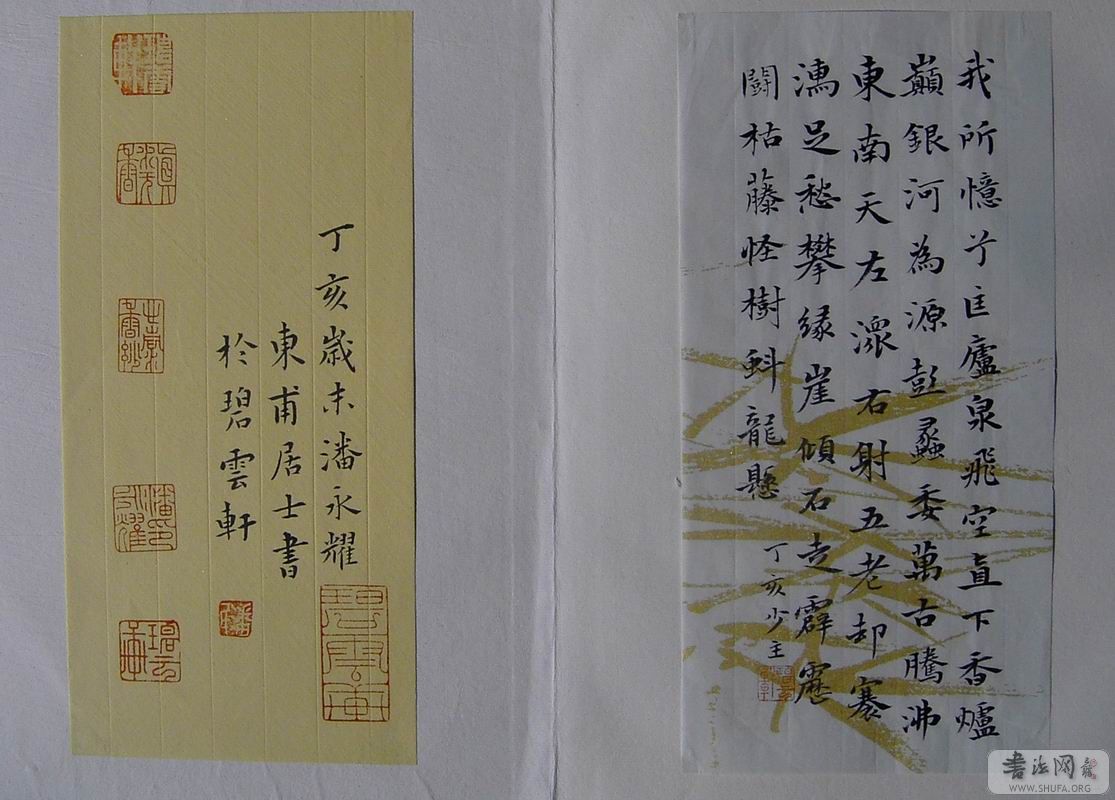 我所憶兮匡廬泉飛空直下香爐
巔銀河為源彭蠡委萬古騰沸
東南天左潨右射五老却褰
足愁攀緣崖傾石走霹靂
鬪枯藤怪樹蚪龍懸
丁亥少主
丁亥歲末潘永耀
東甫居士書
於碧雲軒
碧雲軒
书法网
WWW.SHUFA.ORG